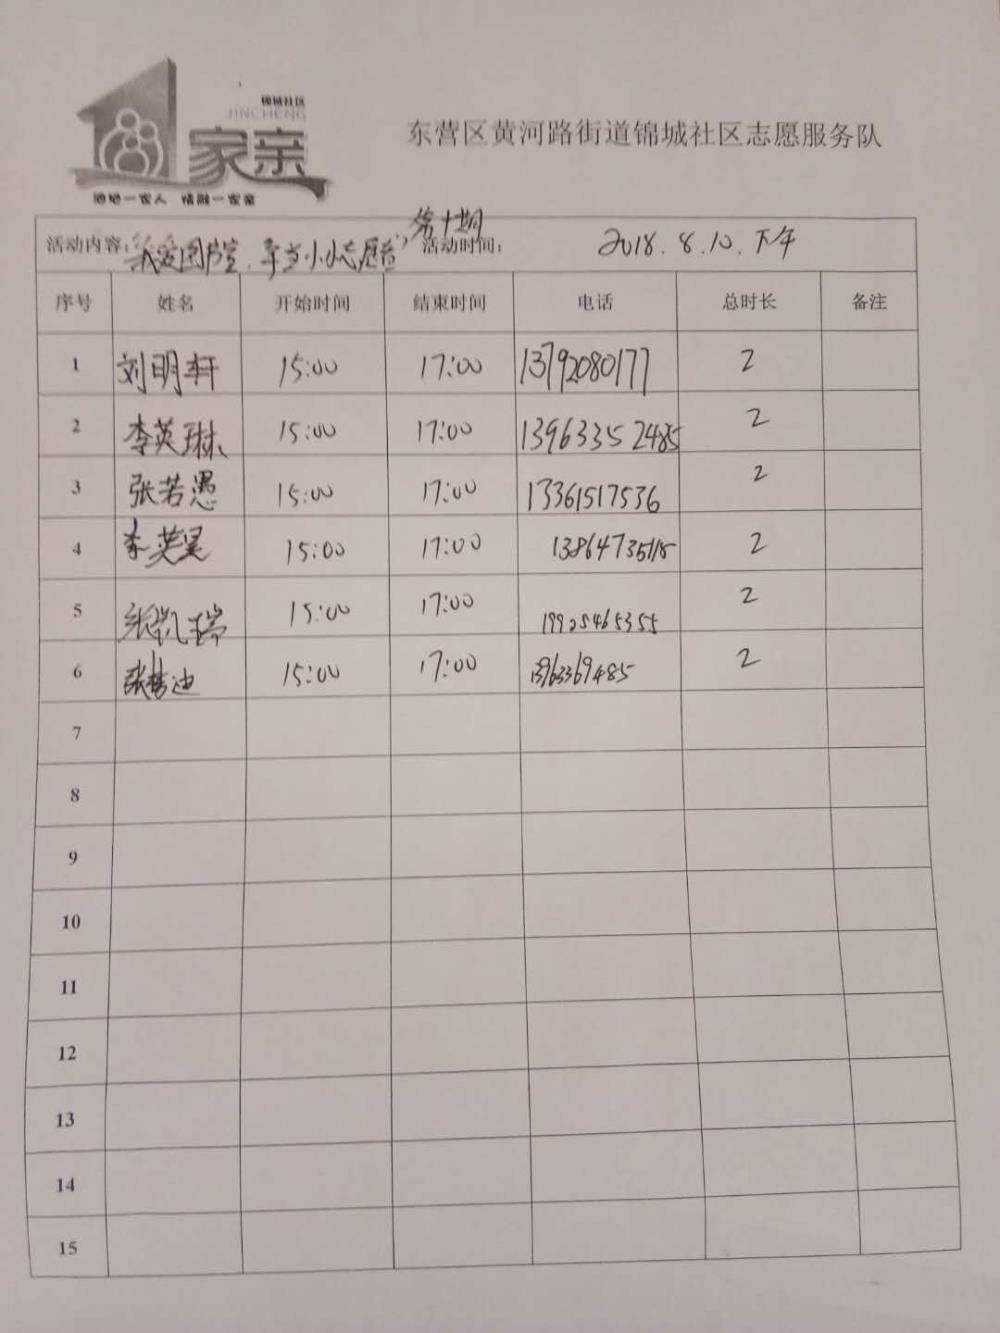 锦城社区
JINCHENG
家亲
东营区黄河路街道锦城社区志愿服务队
第十期
活动内容:“我爱图书室,争当小小志愿者” 活动时间: 2018.8.10.下午
序号 姓名 开始时间 结束时间 电话 总时长 备注
1 刘明轩 15:00 17:00 13792080177 2
2 李英琳 15:00 17:00 13963352485 2
3 张若愚 15:00 17:00 13361517536 2
4 李英昊 15:00 17:00 13864735118 2
5 张凯瑞 15:00 17:00 19925465355 2
6 张梦迪 15:00 17:00 13963369485 2
7
8
9
10
11
12
13
14
15